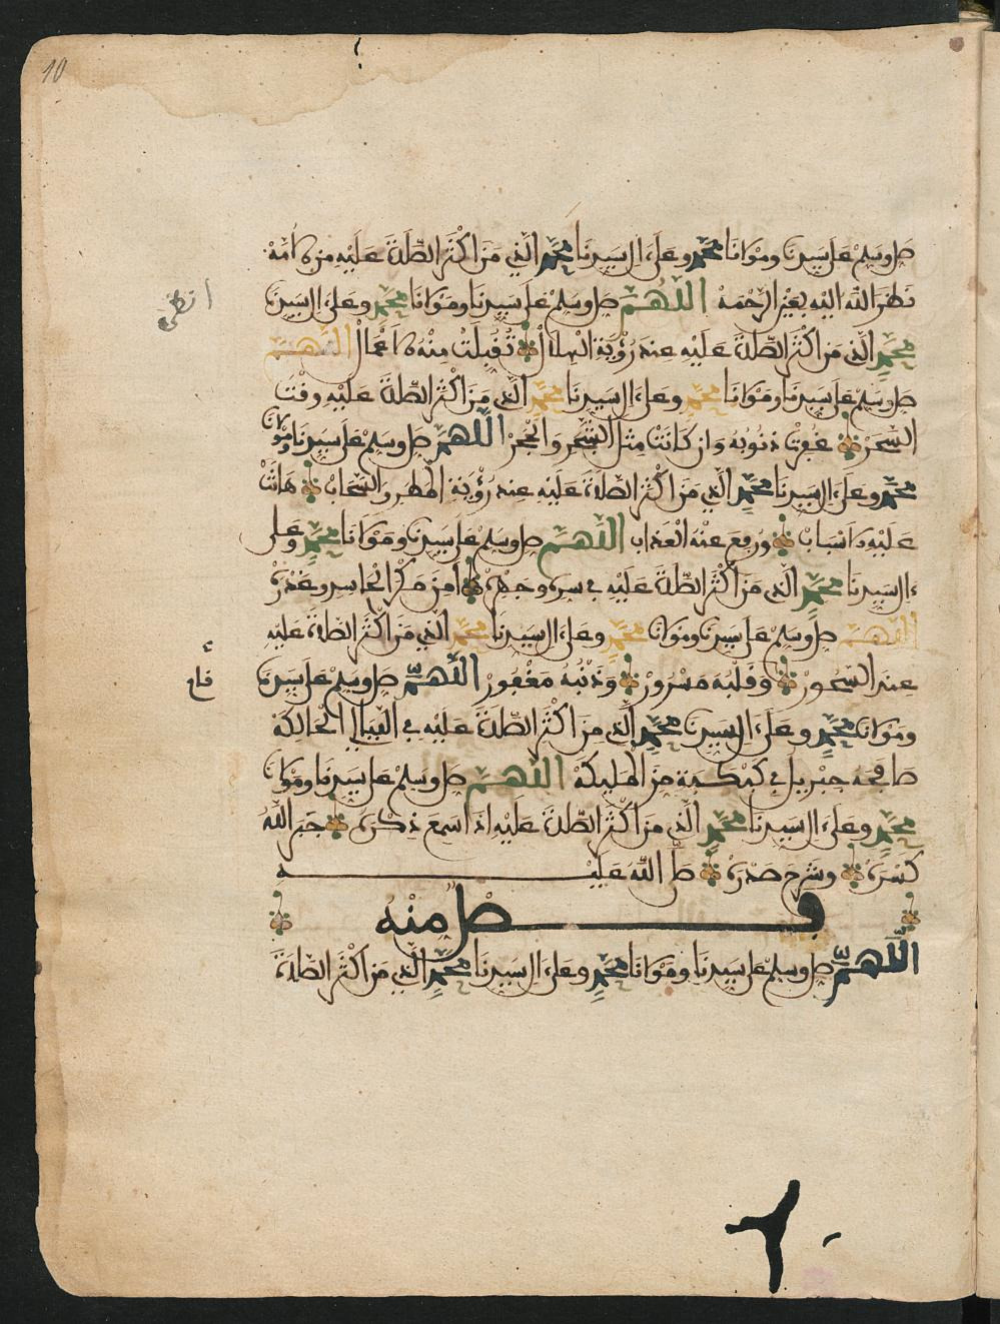 10
صل وسلم على سيدنا ومولانا محمد وعلى ءال سيدنا محمد الذي من اكثر الصلاة عليه من
نظر الله اليه بعين الرحمة اللهم صل وسلم على سيدنا ومولانا محمد وعلى ءال سيدنا
محمد الذي من اكثر الصلاة عليه عند رؤية الهلال تقبلت منه الاعمال اللهم
صل وسلم على سيدنا ومولانا محمد وعلى ءال سيدنا محمد الذي من اكثر الصلاة عليه وقت
السحر غفرت ذنوبه وان كانت مثل الشجر والحجر اللهم صل وسلم على سيدنا ومولانا
محمد وعلى ءال سيدنا محمد الذي من اكثر الصلاة عليه عند رؤية المطر والسحاب هانت
عليه الاسباب ورفع عنه العذاب اللهم صل وسلم على سيدنا ومولانا محمد وعلى
ءال سيدنا محمد الذي من اكثر الصلاة عليه في سره وجهره امن من مكر الحاسد وغدره
اللهم صل وسلم على سيدنا ومولانا محمد وعلى ءال سيدنا محمد الذي من اكثر الصلاة عليه
عند السحور وقلبه مسرور وذنبه مغفور اللهم صل وسلم على سيدنا
ومولانا محمد وعلى ءال سيدنا محمد الذي من اكثر الصلاة عليه في الليالي الحالكة
صافحه جبريل في كبكبة من الملايكة اللهم صل وسلم على سيدنا ومولانا
محمد وعلى ءال سيدنا محمد الذي من اكثر الصلاة عليه اذا سمع ذكره جبر الله
كسره وشرح صدره صلى الله عليه
فصل منه
اللهم صل وسلم على سيدنا ومولانا محمد وعلى ءال سيدنا محمد الذي من اكثر الصلاة